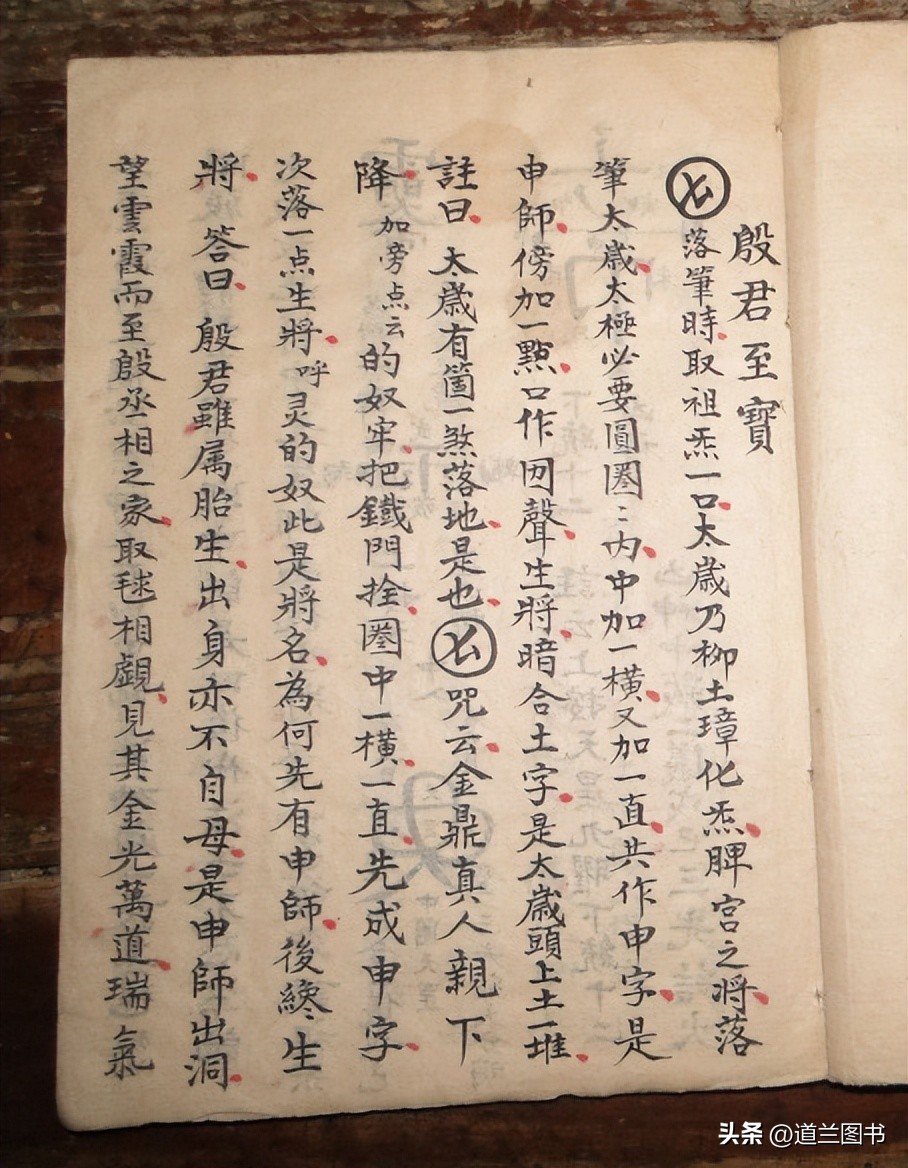 殷君至寶
落筆時取祖炁一口太歲乃柳土璋化炁脾宮之將落
筆太歲太極必要圓圈〻內中加一橫又加一直共作申字是
申師傍加一點口作囝聲生將暗合土字是太歲頭上土一堆
註曰太歲有箇一煞落地是也 咒云金鼎真人親下
降加旁点云的奴牢把鐵門拴圈中一橫一直先成申字
次落一点生將呼灵的奴此是將名為何先有申師後纔生
將答曰殷君雖属胎生出身亦不自母是申師出洞
望雲霞而至殷丞相之家取毬相覷見其金光萬道瑞氣
头条 @道兰图书